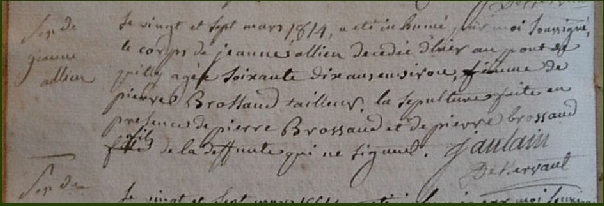 Sep. de
jeanne
allien
Le vingt et sept mars 1814, a été inhumé, par moi soussigné,
le corps de jeanne allien decedée d'hier au pont de
pitié agée soixante dix ans environ, femme de
pierre Brossaud tailleur. la sepulture faite en
presence de pierre Brossaud et de pierre brossaud
fils de la deffunte qui ne signent. Jaulain
Desservant
Sep. de
Le vingt et sept mars 1814 par moi soussi